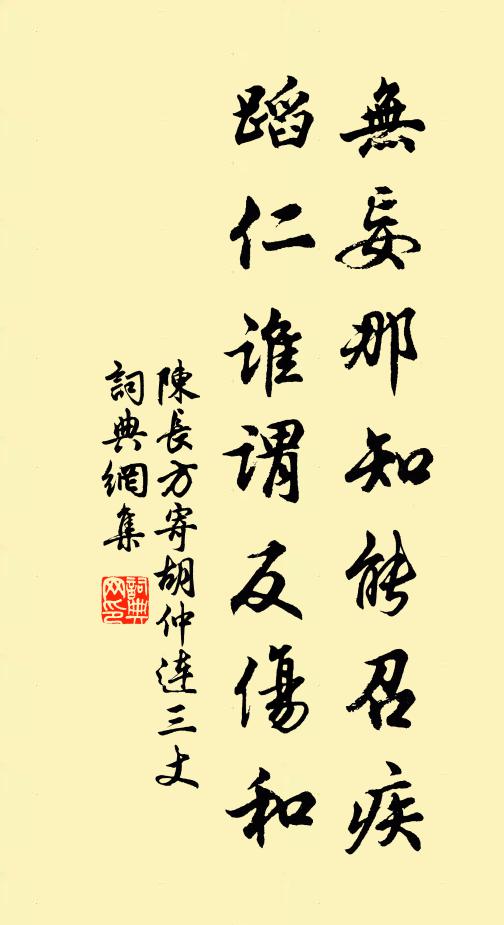 無妄那知能召疾
蹈仁誰謂反傷和
陳長方寄胡仲連三丈
詞典網集
詞典网印